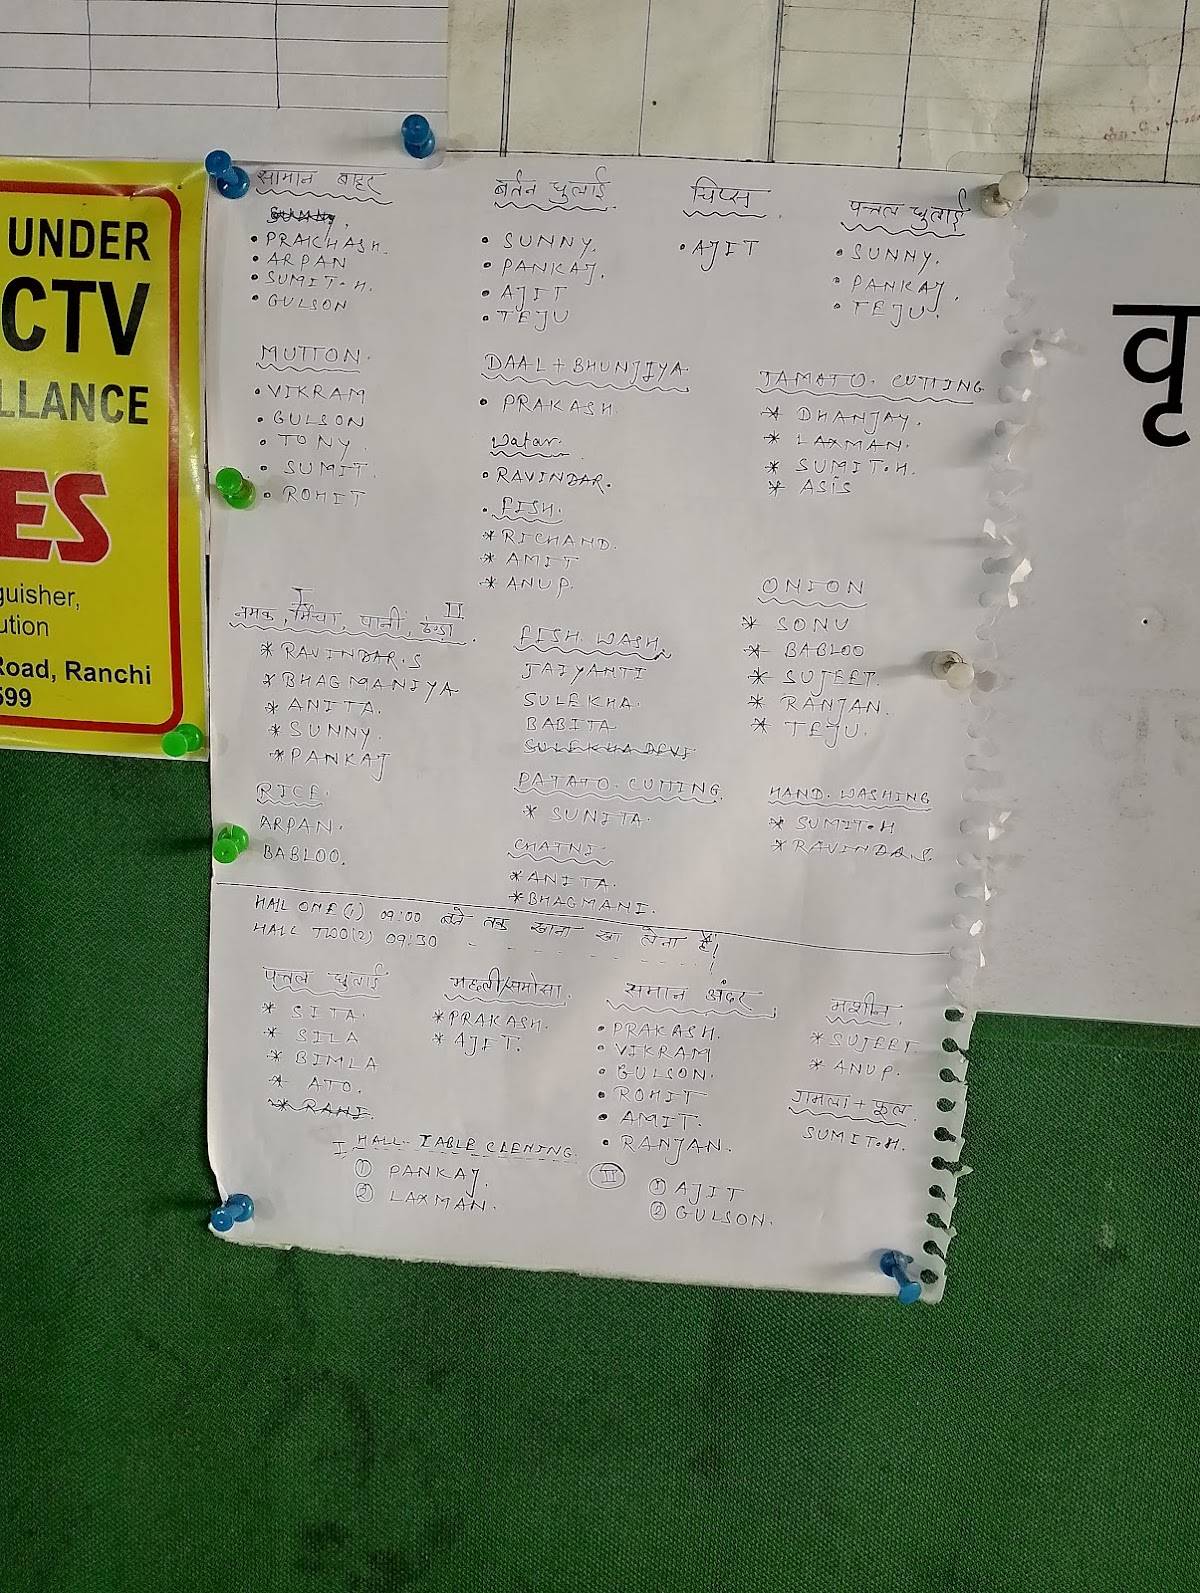 UNDER
CTV
LLANCE
ES
guisher,
ution
Road, Ranchi
599
वृ
सामान बाहर
SUNNY.
• PRAKHASH.
• ARPAN
• SUMIT.H.
• GULSON
बर्तन धुलाई
• SUNNY.
• PANKAJ.
• AJIT
• TEJU
चिप्स
• AJIT
पत्तल धुलाई
• SUNNY.
• PANKAJ.
• TEJU.
MUTTON.
• VIKRAM
• GULSON
• TONY.
• SUMIT.
• ROHIT
DAAL + BHUNJIYA
• PRAKASH.
Watar.
• RAVINDAR.
• FISH.
* RICHAND.
* AMIT
* ANUP.
TAMATO. CUTTING
* DHANJAY.
* LAXMAN.
* SUMIT.H.
* ASIS
ONION
* SONU
* BABLOO
* SUJEET.
* RANJAN.
* TEJU.
I II
नमक, मिर्चा, पानी, ठण्डा.
* RAVINDAR.S
* BHAGMANIYA
* ANITA.
* SUNNY.
* PANKAJ
FISH. WASH.
JAIYANTI
SULEKHA.
BABITA
SULEKHA DEVI
RICE.
ARPAN.
BABLOO.
PATATO. CUTTING
* SUNITA.
CHATNI.
* ANITA.
* BHAGMANI.
HAND. WASHING
* SUMIT.H
* RAVINDAR.S.
HALL ONE (1) 09:00 बजे तक खाना खा लेना है।
HALL TWO(2) 09:30 - - - - - - - - - - - - - - - - - ।
पत्तल धुलाई
* SITA.
* SILA
* BIMLA
* ATO.
* RANI.
मछली/समोसा.
* PRAKASH.
* AJIT.
समान अंदर
• PRAKASH.
• VIKRAM
• GULSON.
• ROHIT
• AMIT.
• RANJAN.
मशीन.
* SUJEET.
* ANUP.
गमला + फूल.
SUMIT.H.
I HALL- TABLE CLENING.
① PANKAJ.
② LAXMAN.
II
① AJIT
② GULSON.